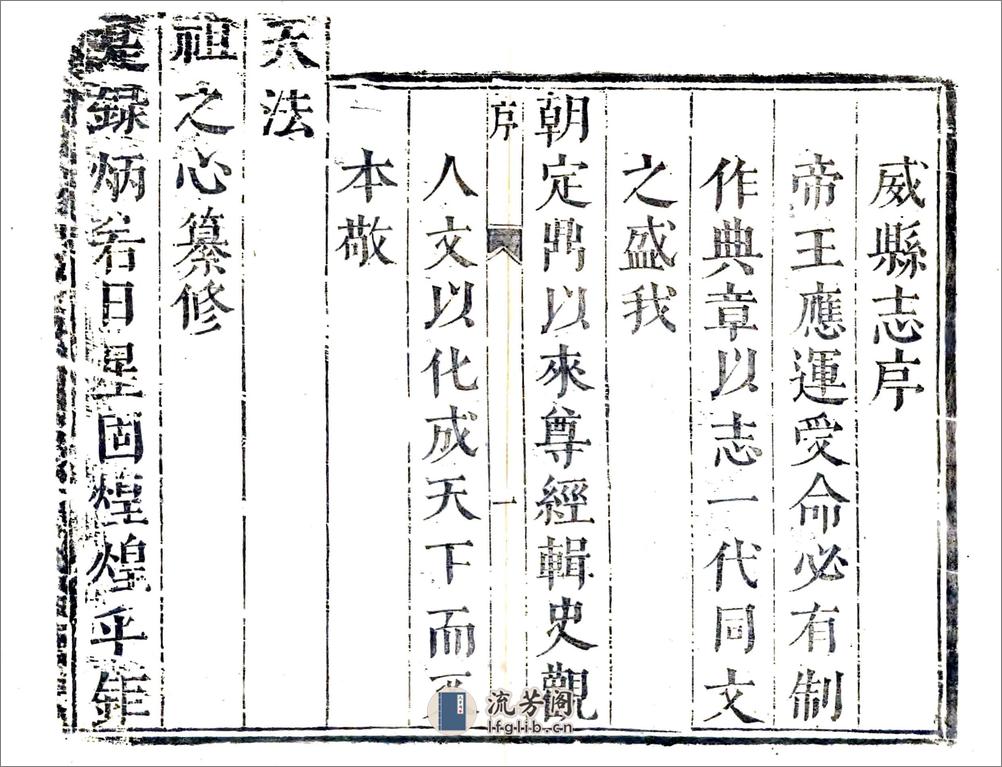 威縣志序
帝王應運受命必有制
作典章以志一代同文
之盛我
朝定鼎以來尊經輯史觀
序
一
人文以化成天下而
本敬
天法
祖之心纂修
是録炳若日星固煌煌乎鉅
流芳阁
lfglib.cn